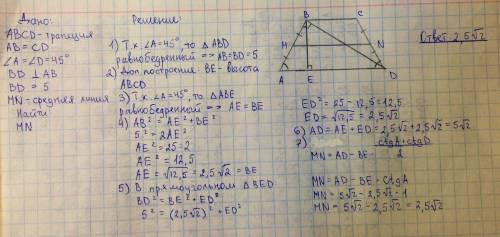 Дано:
ABCD-трапеция
AB=CD
∠A=∠D=45°
BD⊥AB
BD = 5
MN-средняя линия
Найти:
MN
Решение:
1) Т.к. ∠A=45°, то △ABD
равнобедренный => AB=BD=5
2) Доп.построение: BE-высота
ABCD
3) Т.к. ∠A=45°, то △ABE
равнобедренный => AE=BE
4) AB²=AE²+BE²
5²=2AE²
AE²=25÷2
AE²=12,5
AE=√12,5=2,5√2=BE
5) В прямоугольном △BED
BD²=BE²+ED²
5²=(2,5√2)²+ED²
B C
M N
A E D
ED²=25-12,5=12,5
ED=√12,5=2,5√2
6) AD=AE+ED=2,5√2+2,5√2=5√2
7) MN=AD-BE· ctgA+ctgD
2
MN=AD-BE·ctgA
MN=5√2-2,5√2·1
MN=5√2-2,5√2=2,5√2
Ответ: 2,5√2